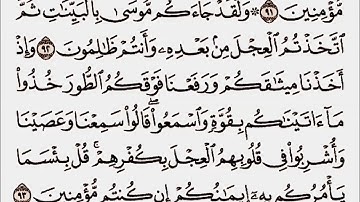 مُّؤْمِنِينَ ۝٩١ ۞ وَلَقَدْ جَآءَكُم مُّوسَىٰ بِٱلْبَيِّنَٰتِ ثُمَّ
ٱتَّخَذْتُمُ ٱلْعِجْلَ مِنۢ بَعْدِهِۦ وَأَنتُمْ ظَٰلِمُونَ ۝٩٢ وَإِذْ
أَخَذْنَا مِيثَٰقَكُمْ وَرَفَعْنَا فَوْقَكُمُ ٱلطُّورَ خُذُوا۟
مَآ ءَاتَيْنَٰكُم بِقُوَّةٍ وَٱسْمَعُوا۟ ۖ قَالُوا۟ سَمِعْنَا وَعَصَيْنَا
وَأُشْرِبُوا۟ فِى قُلُوبِهِمُ ٱلْعِجْلَ بِكُفْرِهِمْ ۚ قُلْ بِئْسَمَا
يَأْمُرُكُم بِهِۦٓ إِيمَٰنُكُمْ إِن كُنتُم مُّؤْمِنِينَ ۝٩٣